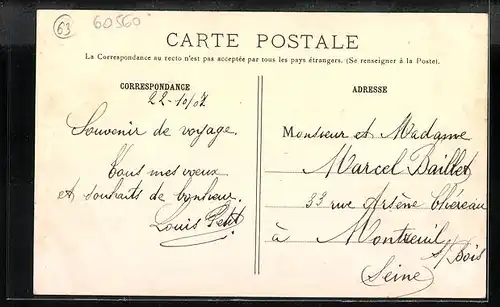 63
60560
CARTE POSTALE
La Correspondance au recto n'est pas acceptée par tous les pays étrangers. (Se renseigner à la Poste).
CORRESPONDANCE
22-10/07
Souvenir de voyage.
Tous mes vœux
et souhaits de bonheur.
Louis Petit
ADRESSE
Monsieur et Madame
Marcel Baillet
33 rue Arsène Chéreau
à Montreuil
s/Bois
(Seine)